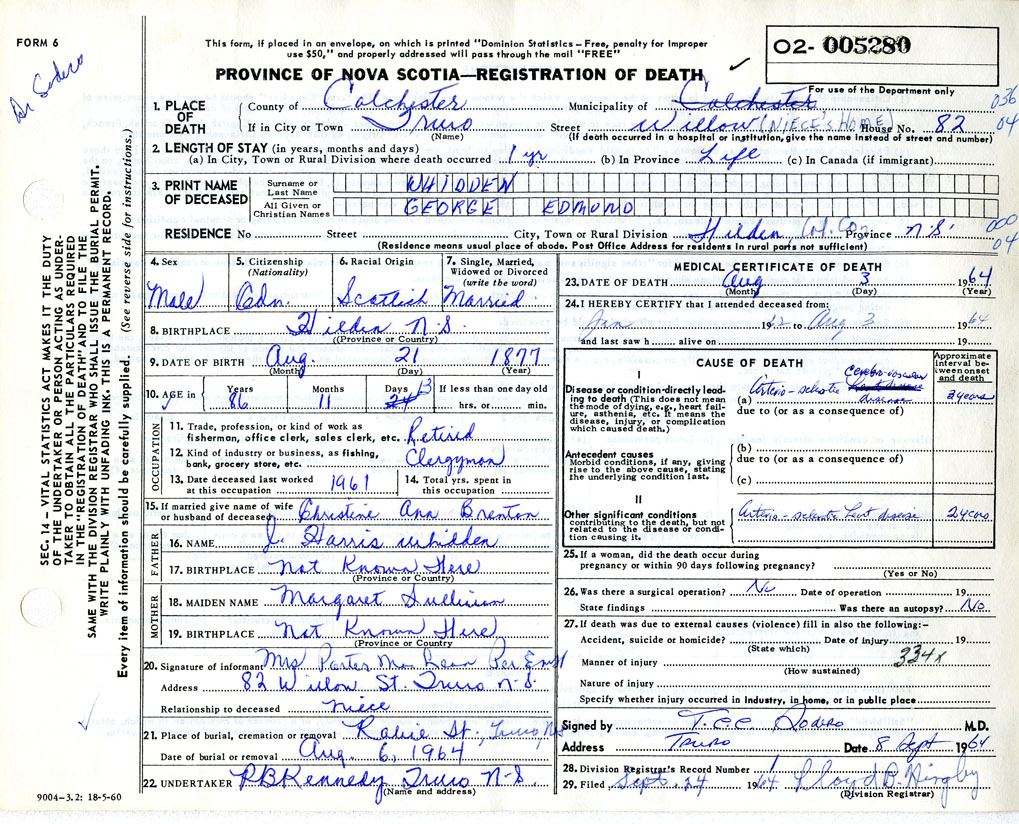 FORM 6
Dr Sodero
This form, if placed in an envelope, on which is printed "Dominion Statistics – Free, penalty for improper
use $50," and properly addressed will pass through the mail "FREE"
O2- 005280
PROVINCE OF NOVA SCOTIA—REGISTRATION OF DEATH ✓
For use of the Department only
036
04
1. PLACE OF DEATH County of Colchester Municipality of Colchester
If in City or Town Truro Street Willow (NIECE'S HOME) House No. 82
(Name) (If death occurred in a hospital or institution, give the name instead of street and number)
2. LENGTH OF STAY (in years, months and days)
(a) In City, Town or Rural Division where death occurred 1 yr (b) In Province Life (c) In Canada (if immigrant)
3. PRINT NAME OF DECEASED Surname or Last Name WHIDDEN
All Given or Christian Names GEORGE EDMUND
000
04
RESIDENCE No Street City, Town or Rural Division Hilden Col. Co. Province N.S.
(Residence means usual place of abode. Post Office Address for residents in rural parts not sufficient)
SEC. 14 – VITAL STATISTICS ACT MAKES IT THE DUTY
OF THE UNDERTAKER OR PERSON ACTING AS UNDER-
TAKER TO OBTAIN ALL THE PARTICULARS REQUIRED
IN THE "REGISTRATION OF DEATH" AND TO FILE THE
SAME WITH THE DIVISION REGISTRAR WHO SHALL ISSUE THE BURIAL PERMIT.
WRITE PLAINLY WITH UNFADING INK. THIS IS A PERMANENT RECORD.
Every item of information should be carefully supplied. (See reverse side for instructions.)
4. Sex Male
5. Citizenship (Nationality) Cdn.
6. Racial Origin Scottish
7. Single, Married, Widowed or Divorced (write the word) Married
8. BIRTHPLACE Hilden N.S.
(Province or Country)
9. DATE OF BIRTH Aug. 21 1877
(Month) (Day) (Year)
10. AGE in Years 86 Months 11 Days 24 13 If less than one day old
hrs. or min.
OCCUPATION
11. Trade, profession, or kind of work as
fisherman, office clerk, sales clerk, etc. Retired
12. Kind of industry or business, as fishing,
bank, grocery store, etc. Clergyman
13. Date deceased last worked
at this occupation 1961
14. Total yrs. spent in
this occupation
15. If married give name of wife
or husband of deceased Christine Ann Brenton
FATHER
16. NAME J. Harris Whidden
17. BIRTHPLACE Not Known Here
(Province or Country)
MOTHER
18. MAIDEN NAME Margaret
19. BIRTHPLACE Not Known Here
(Province or Country
20. Signature of informant Mrs Porter Per
Address 82 Willow St. Truro N.S.
Relationship to deceased Niece
21. Place of burial, cremation or removal Robie St., Truro, NS
Date of burial or removal Aug. 6, 1964
22. UNDERTAKER RB Kennedy Truro N-S.
(Name and address)
9004–3.2: 18-5-60
MEDICAL CERTIFICATE OF DEATH
23. DATE OF DEATH Aug 3 1964
(Month) (Day) (Year)
24. I HEREBY CERTIFY that I attended deceased from:
Jan 1962 to Aug 3 1964
and last saw h alive on 19
CAUSE OF DEATH
Approximate interval between onset and death
I
Disease or condition directly lead-
ing to death (This does not mean
the mode of dying, e.g., heart fail-
ure, asthenia, etc. It means the
disease, injury, or complication
which caused death.)
(a) Arterio-sclerotic heart disease cerebro-vascular disease 2 years
due to (or as a consequence of)
Antecedent causes
Morbid conditions, if any, giving
rise to the above cause, stating
the underlying condition last.
(b)
due to (or as a consequence of)
(c)
II
Other significant conditions
contributing to the death, but not
related to the disease or condi-
tion causing it.
Arterio-sclerotic heart disease 2 years
25. If a woman, did the death occur during
pregnancy or within 90 days following pregnancy?
(Yes or No)
26. Was there a surgical operation? No Date of operation 19
State findings Was there an autopsy? No
27. If death was due to external causes (violence) fill in also the following:–
Accident, suicide or homicide? Date of injury 19
(State which)
334x
Manner of injury
(How sustained)
Nature of injury
Specify whether injury occurred in industry, in home, or in public place
Signed by T.C.C. Sodero M.D.
Address Truro Date 8 Sept 1964
28. Division Registrar's Record Number 1
29. Filed Sept. 24 1964 Lloyd B.
(Division Registrar)